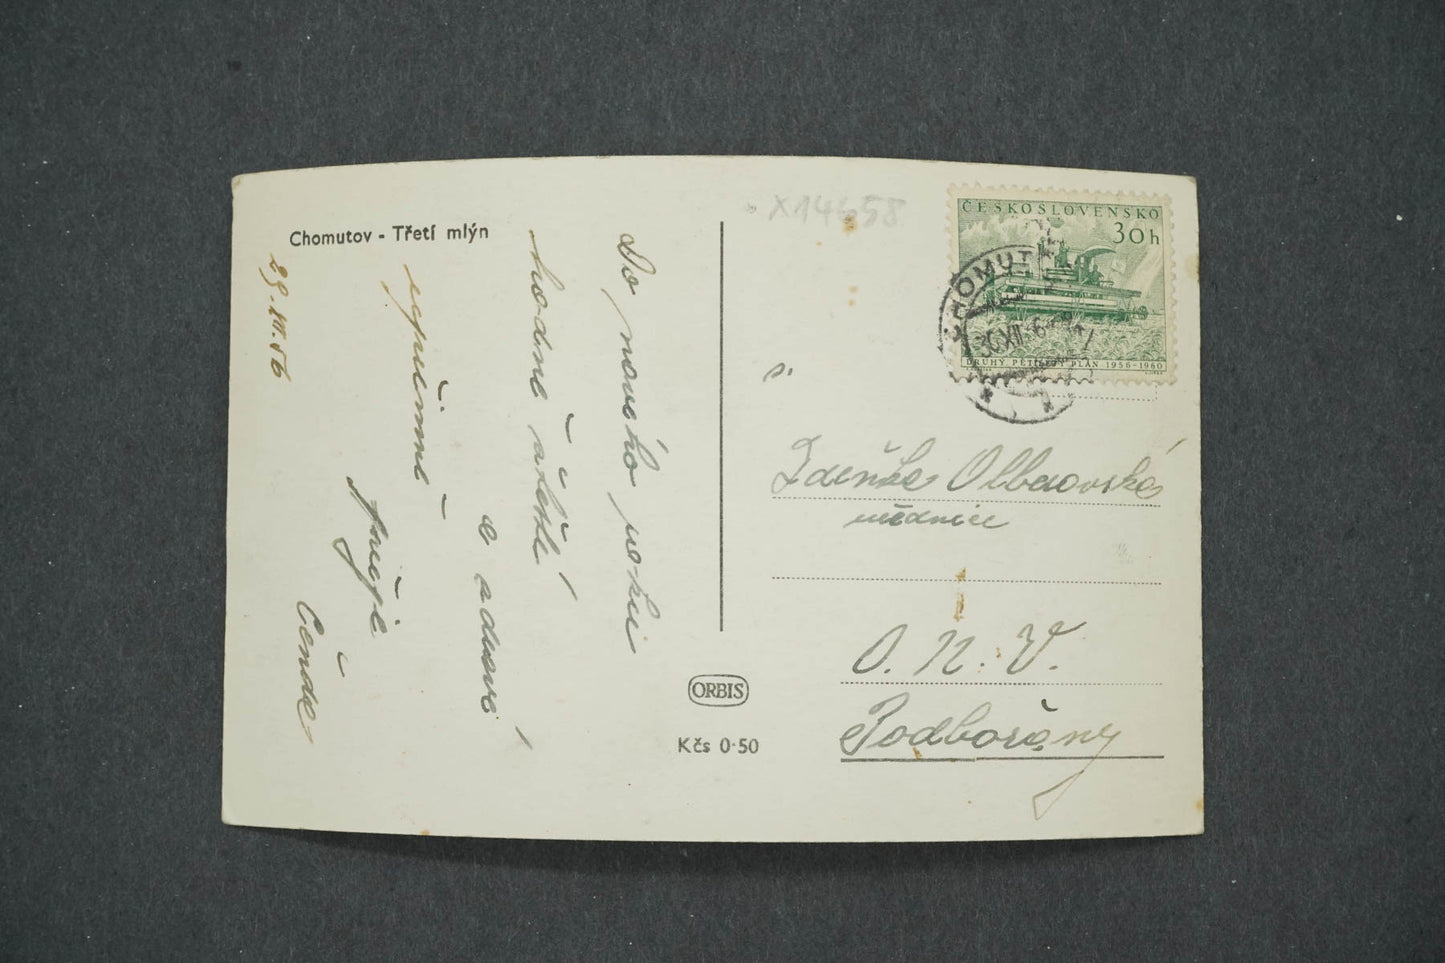 Chomutov - Třetí mlýn
29.XII.56
Do nového roku
hodně štěstí
a zdraví
upřímně
přeje
Čenda
X14458
ČESKOSLOVENSKO
30h
DRUHÝ PĚTILETÝ PLÁN 1956-1960
CHOMUTOV
30.XII.56
s.
Zdeňka Olberovská
úřednice
O. N. V.
Podbořany
ORBIS
Kčs 0·50